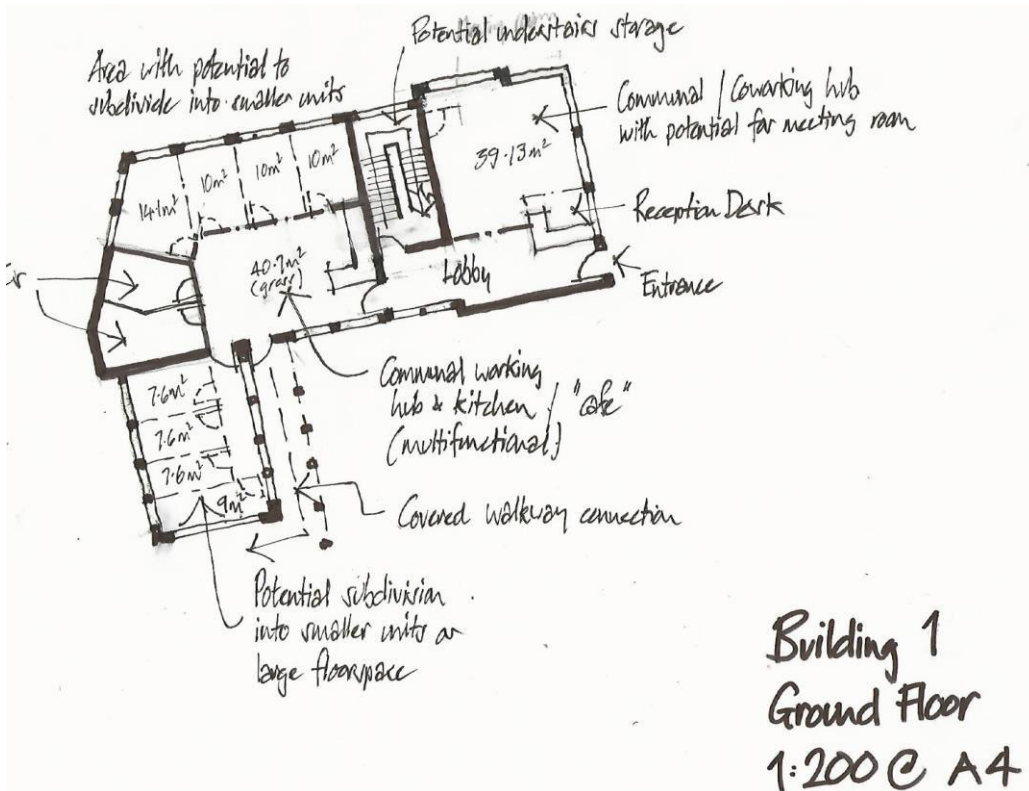 Potential understairs storage
Area with potential to
subdivide into smaller units
Communal / Coworking hub
with potential for meeting room
39.13m²
10m²
10m²
10m²
14.1m²
Reception Desk
40.7m²
(gross)
Lobby
Entrance
Communal working
hub & kitchen / "cafe"
(multifunctional)
7.6m²
7.6m²
7.6m²
9m²
Covered walkway connection
Potential subdivision
into smaller units or
large floorspace
Building 1
Ground Floor
1:200 @ A4